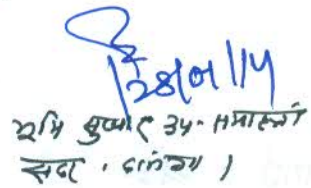 28/01/14
रवि कुमार उप-समाहर्ता
सदर, दरभंगा ।